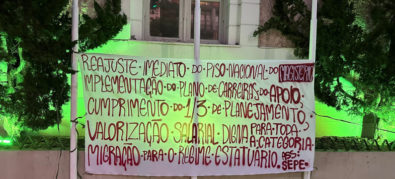 REAJUSTE IMEDIATO DO PISO NACIONAL DO MAGISTÉRIO,
IMPLEMENTAÇÃO DO PLANO DE CARREIROS DO APOIO,
CUMPRIMENTO DO 1/3 DE PLANEJAMENTO,
VALORIZAÇÃO SALARIAL DIGNA PARA TODA A CATEGORIA
MIGRAÇÃO PARA O REGIME ESTATUÁRIO.
SEPE